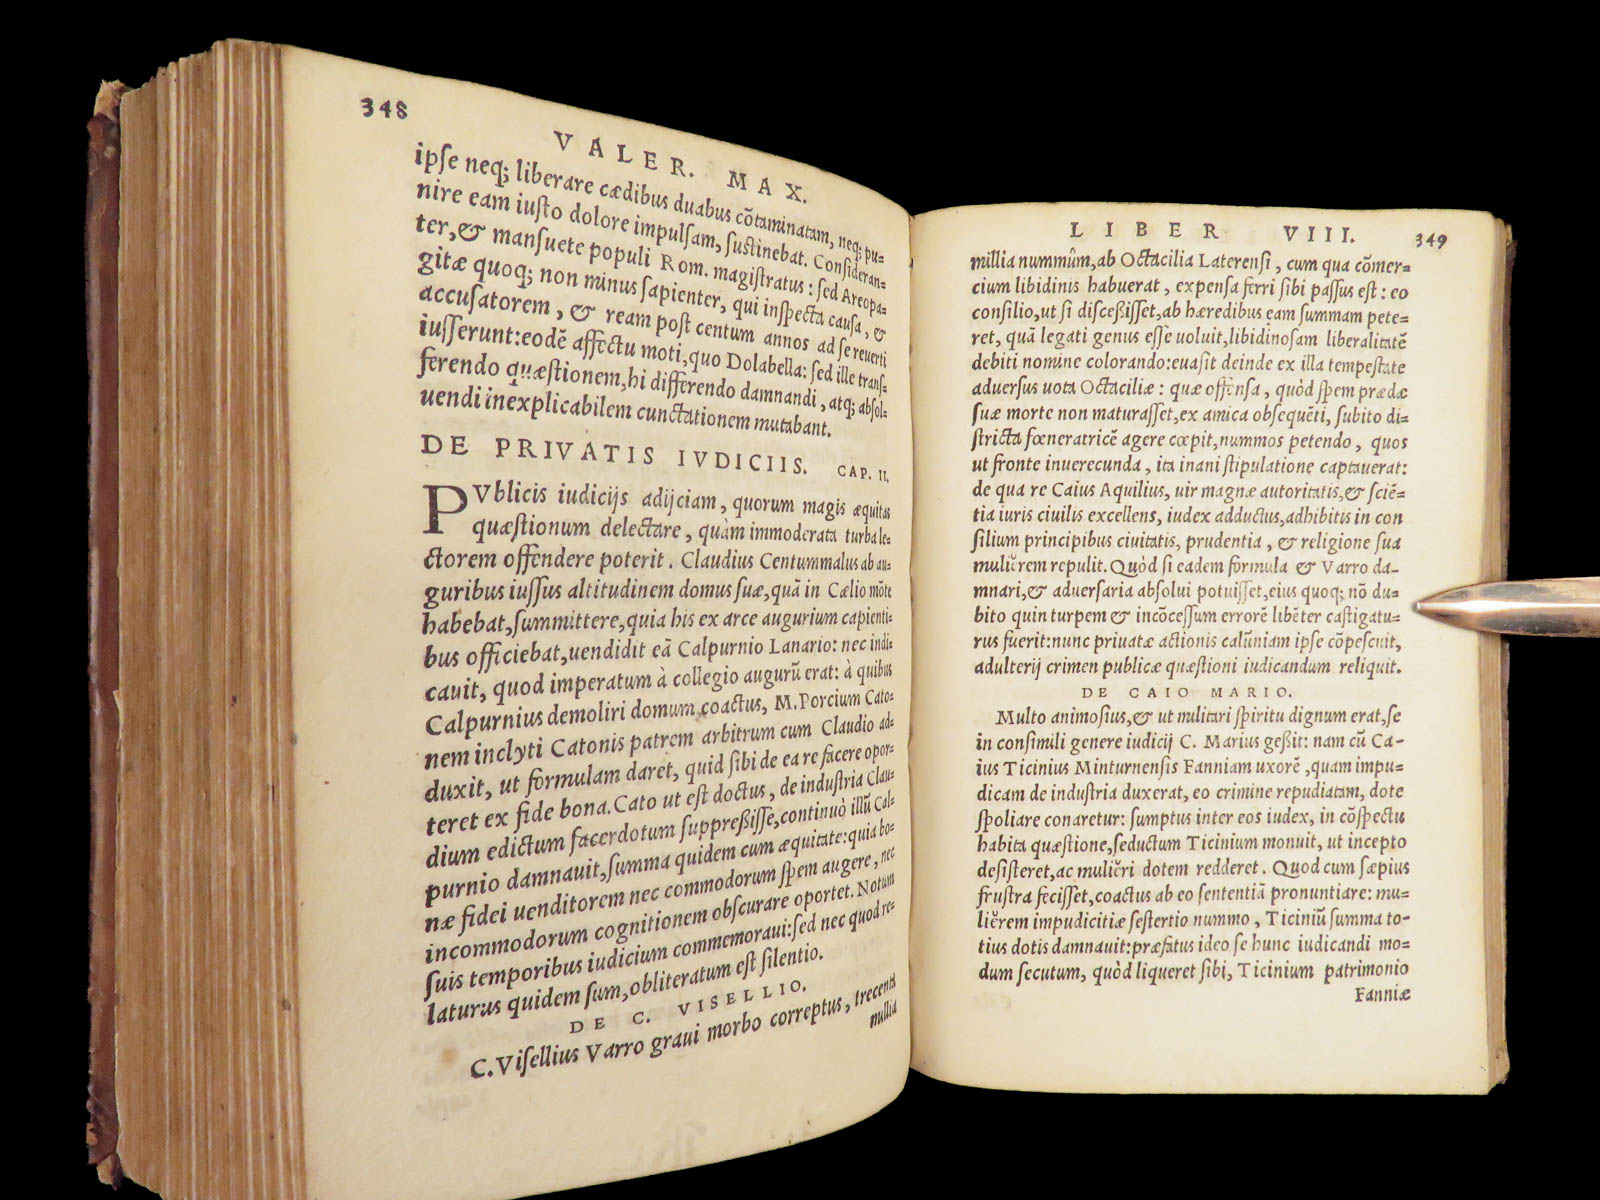 348
VALER. MAX.
ipſe neq; liberare cædibus duabus cõtaminatam, neq; pu=
nire eam iuſto dolore impulſam, ſuſtinebat. Conſideran=
ter, & manſuete populi Rom. magiſtratus: ſed Areopa=
gitæ quoq; non minus ſapienter, qui inſpecta cauſa, &
accuſatorem, & ream poſt centum annos ad ſe reuerti
iuſſerunt: eodē affectu moti, quo Dolabella: ſed ille tranſ=
ferendo quæſtionem, hi differendo damnandi, atq; abſol=
uendi inexplicabilem cunctationem mutabant.
DE PRIVATIS IVDICIIS. CAP. II.
PVblicis iudicijs adijciam, quorum magis æquitas
quæſtionum delectare, quàm immoderata turba le=
ctorem offendere poterit. Claudius Centummalus ab au=
guribus iuſſus altitudinem domus ſuæ, quã in Cælio mõte
habebat, ſummittere, quia his ex arce augurium capienti=
bus officiebat, uendidit eã Calpurnio Lanario: nec indi=
cauit, quod imperatum à collegio augurũ erat: à quibus
Calpurnius demoliri domum coactus, M. Porcium Cato=
nem inclyti Catonis patrem arbitrum cum Claudio ad=
duxit, ut formulam daret, quid ſibi de ea re facere opor=
teret ex fide bona. Cato ut eſt doctus, de induſtria Clau=
dium edictum ſacerdotum ſuppreßiſſe, continuò illũ Cal=
purnio damnauit, ſumma quidem cum æquitate: quia bo=
næ fidei uenditorem nec commodorum ſpem augere, nec
incommodorum cognitionem obſcurare oportet. Notum
ſuis temporibus iudicium commemoraui: ſed nec quod re=
laturus quidem ſum, obliteratum eſt ſilentio.
DE C. VISELLIO.
C. Viſellius Varro graui morbo correptus, trecenta
millia
LIBER VIII. 349
millia nummûm, ab Octacilia Laterenſi, cum qua cõmer=
cium libidinis habuerat, expenſa ferri ſibi paſſus eſt: eo
conſilio, ut ſi diſceßiſſet, ab hæredibus eam ſummam pete=
ret, quã legati genus eſſe uoluit, libidinoſam liberalitatē
debiti nomine colorando: euaſit deinde ex illa tempeſtate
aduerſus uota Octaciliæ: quæ offenſa, quòd ſpem prædæ
ſuæ morte non maturaſſet, ex amica obſequēti, ſubito di=
ſtricta fœneratricē agere cœpit, nummos petendo, quos
ut fronte inuerecunda, ita inani ſtipulatione captauerat:
de qua re Caius Aquilius, uir magnæ autoritatis, & ſciē=
tia iuris ciuilis excellens, iudex adductus, adhibitis in con
ſilium principibus ciuitatis, prudentia, & religione ſua
mulierem repulit. Quòd ſi eadem formula & Varro da-
mnari, & aduerſaria abſolui potuiſſet, eius quoq; nõ du=
bito quin turpem & incõceſſum errorē libēter caſtigatu=
rus fuerit: nunc priuatæ actionis calũniam ipſe cõpeſcuit,
adulterij crimen publicæ quæſtioni iudicandum reliquit.
DE CAIO MARIO.
Multo animoſius, & ut militari ſpiritu dignum erat, ſe
in conſimili genere iudicij C. Marius geßit: nam cũ Ca-
ius Ticinius Minturnenſis Fanniam uxorē, quam impu=
dicam de induſtria duxerat, eo crimine repudiatam, dote
ſpoliare conaretur: ſumptus inter eos iudex, in cõſpectu
habita quæſtione, ſeductum Ticinium monuit, ut incepto
deſiſteret, ac mulieri dotem redderet. Quod cum ſæpius
fruſtra feciſſet, coactus ab eo ſententiã pronuntiare: mu=
lierem impudicitiæ ſeſtertio nummo, Ticiniũ ſumma to-
tius dotis damnauit: præfatus ideo ſe hunc iudicandi mo=
dum ſecutum, quòd liqueret ſibi, Ticinium patrimonio
Fanniæ